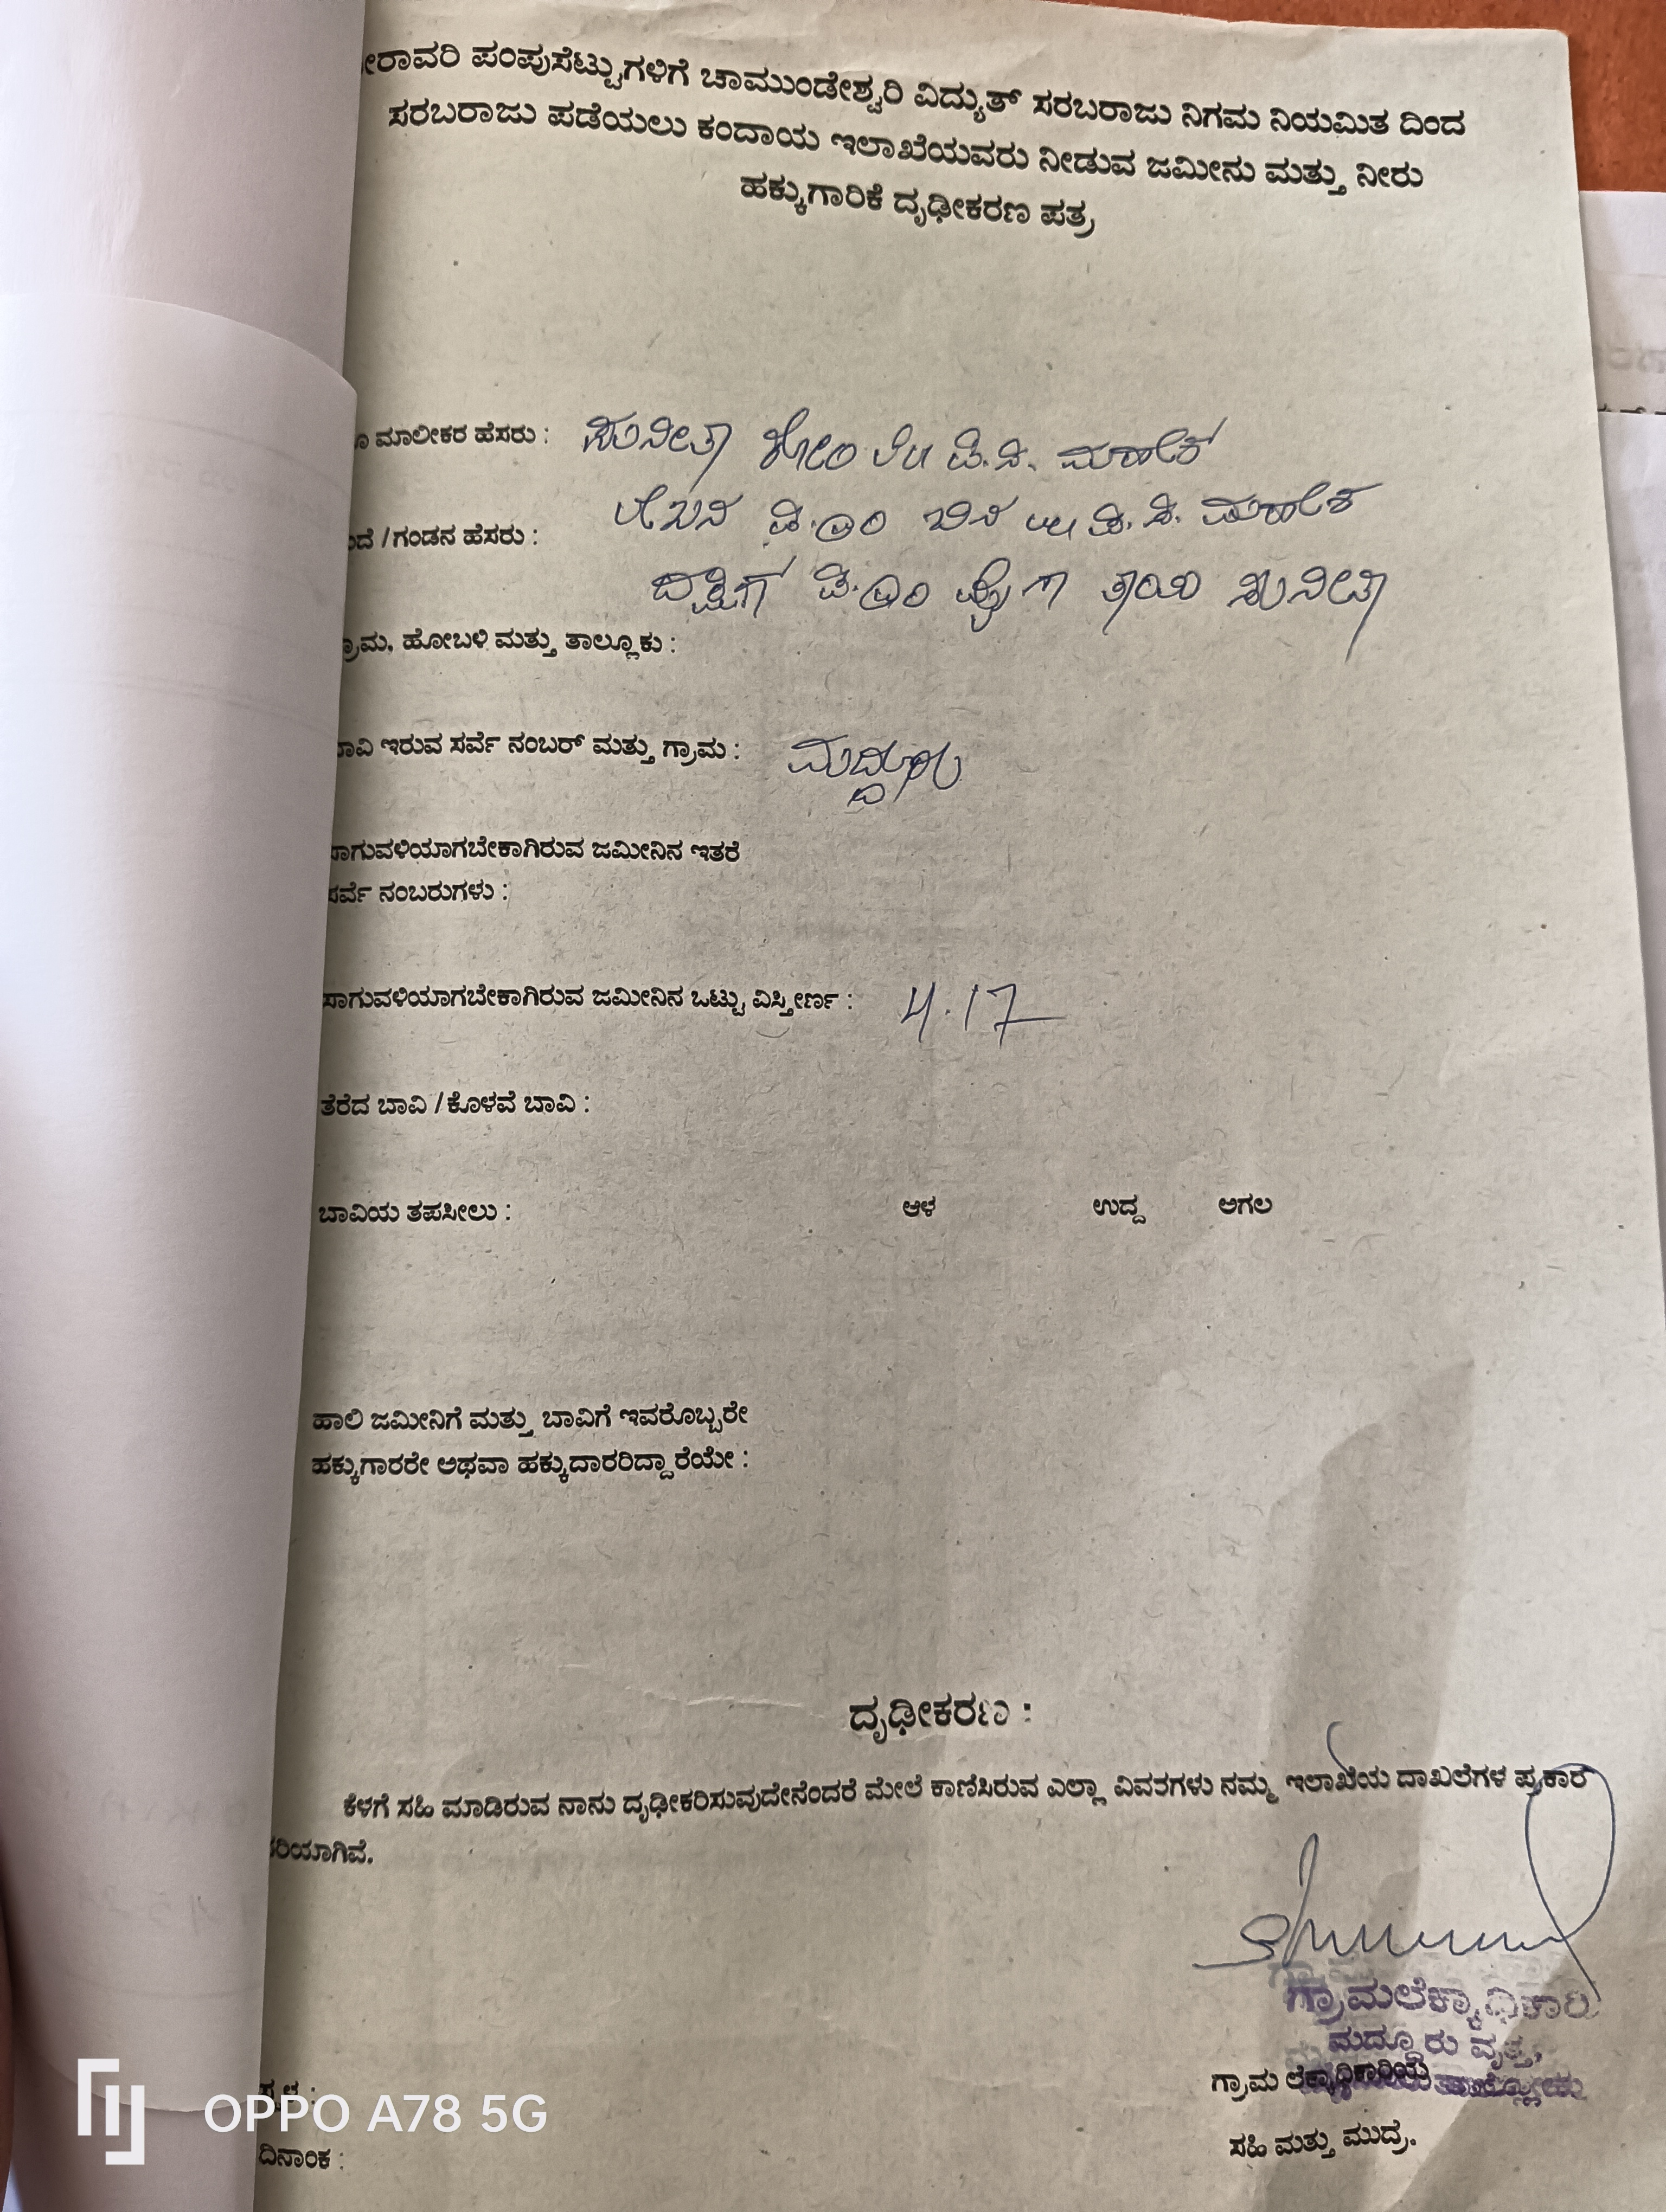 ೀರಾವರಿ ಪಂಪುಸೆಟ್ಟುಗಳಿಗೆ ಚಾಮುಂಡೇಶ್ವರಿ ವಿದ್ಯುತ್ ಸರಬರಾಜು ನಿಗಮ ನಿಯಮಿತ ದಿಂದ
ಸರಬರಾಜು ಪಡೆಯಲು ಕಂದಾಯ ಇಲಾಖೆಯವರು ನೀಡುವ ಜಮೀನು ಮತ್ತು ನೀರು
ಹಕ್ಕುಗಾರಿಕೆ ದೃಢೀಕರಣ ಪತ್ರ
ಮಾಲೀಕರ ಹೆಸರು : ಸುನೀತಾ ಕೋಂ ಲೇ॥ ವಿ.ಸಿ. ಮಹೇಶ್
/ಗಂಡನ ಹೆಸರು :
ತಾಯಿ ಸುನೀತಾ
ಹೋಬಳಿ ಮತ್ತು ತಾಲ್ಲೂಕು :
ಇರುವ ಸರ್ವೆ ನಂಬರ್ ಮತ್ತು ಗ್ರಾಮ : ಮದ್ದೂರು
ಸಾಗುವಳಿಯಾಗಬೇಕಾಗಿರುವ ಜಮೀನಿನ ಇತರೆ
ಸರ್ವೆ ನಂಬರುಗಳು :
ಸಾಗುವಳಿಯಾಗಬೇಕಾಗಿರುವ ಜಮೀನಿನ ಒಟ್ಟು ವಿಸ್ತೀರ್ಣ : 4.17
ತೆರೆದ ಬಾವಿ /ಕೊಳವೆ ಬಾವಿ :
ಬಾವಿಯ ತಪಸೀಲು : ಆಳ ಉದ್ದ ಅಗಲ
ಹಾಲಿ ಜಮೀನಿಗೆ ಮತ್ತು ಬಾವಿಗೆ ಇವರೊಬ್ಬರೇ
ಹಕ್ಕುಗಾರರೇ ಅಥವಾ ಹಕ್ಕುದಾರರಿದ್ದಾರೆಯೇ :
ದೃಢೀಕರಣ :
ಕೆಳಗೆ ಸಹಿ ಮಾಡಿರುವ ನಾನು ದೃಢೀಕರಿಸುವುದೇನೆಂದರೆ ಮೇಲೆ ಕಾಣಿಸಿರುವ ಎಲ್ಲಾ ವಿವರಗಳು ನಮ್ಮ ಇಲಾಖೆಯ ದಾಖಲೆಗಳ ಪ್ರಕಾರ
ಸರಿಯಾಗಿವೆ.
ಗ್ರಾಮಲೆಕ್ಕಾಧಿಕಾರಿ
ಮದ್ದೂರು ವೃತ್ತ,
ಗ್ರಾಮ ಲೆಕ್ಕಾಧಿಕಾರಿಯ
ಸಹಿ ಮತ್ತು ಮುದ್ರೆ.
ದಿನಾಂಕ :
OPPO A78 5G